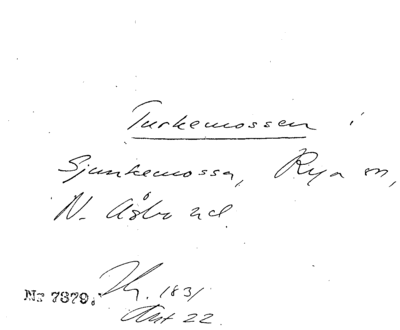 Turkemossen i
Sjunkemossa, Rya sn,
N. Åsbo hd.
No 7379.
1831
Akt 22